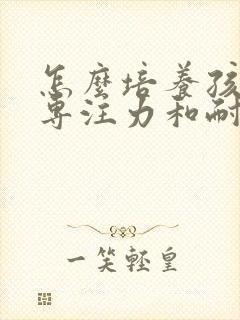 怎麼培養孩
專注力和耐
一笑輕皇